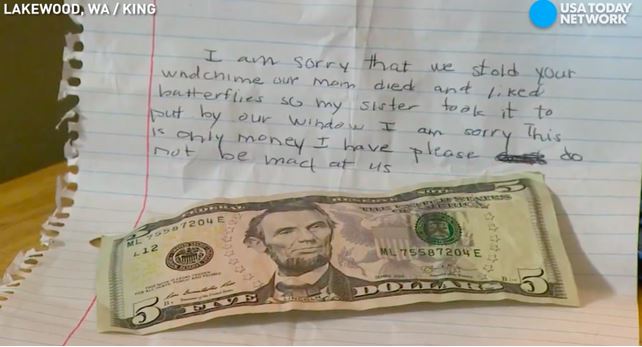 LAKEWOOD, WA / KING
USA TODAY
NETWORK
I am sorry that we stold your
windchime our mom died and liked
batterflies so my sister took it to
put by our window I am sorry This
is only money I have please do
not be mad at us
FEDERAL RESERVE NOTE
THE UNITED STATES
OF AMERICA
ML 75587204 E
L12
ML 75587204 E
5
FIVE DOLLARS
5